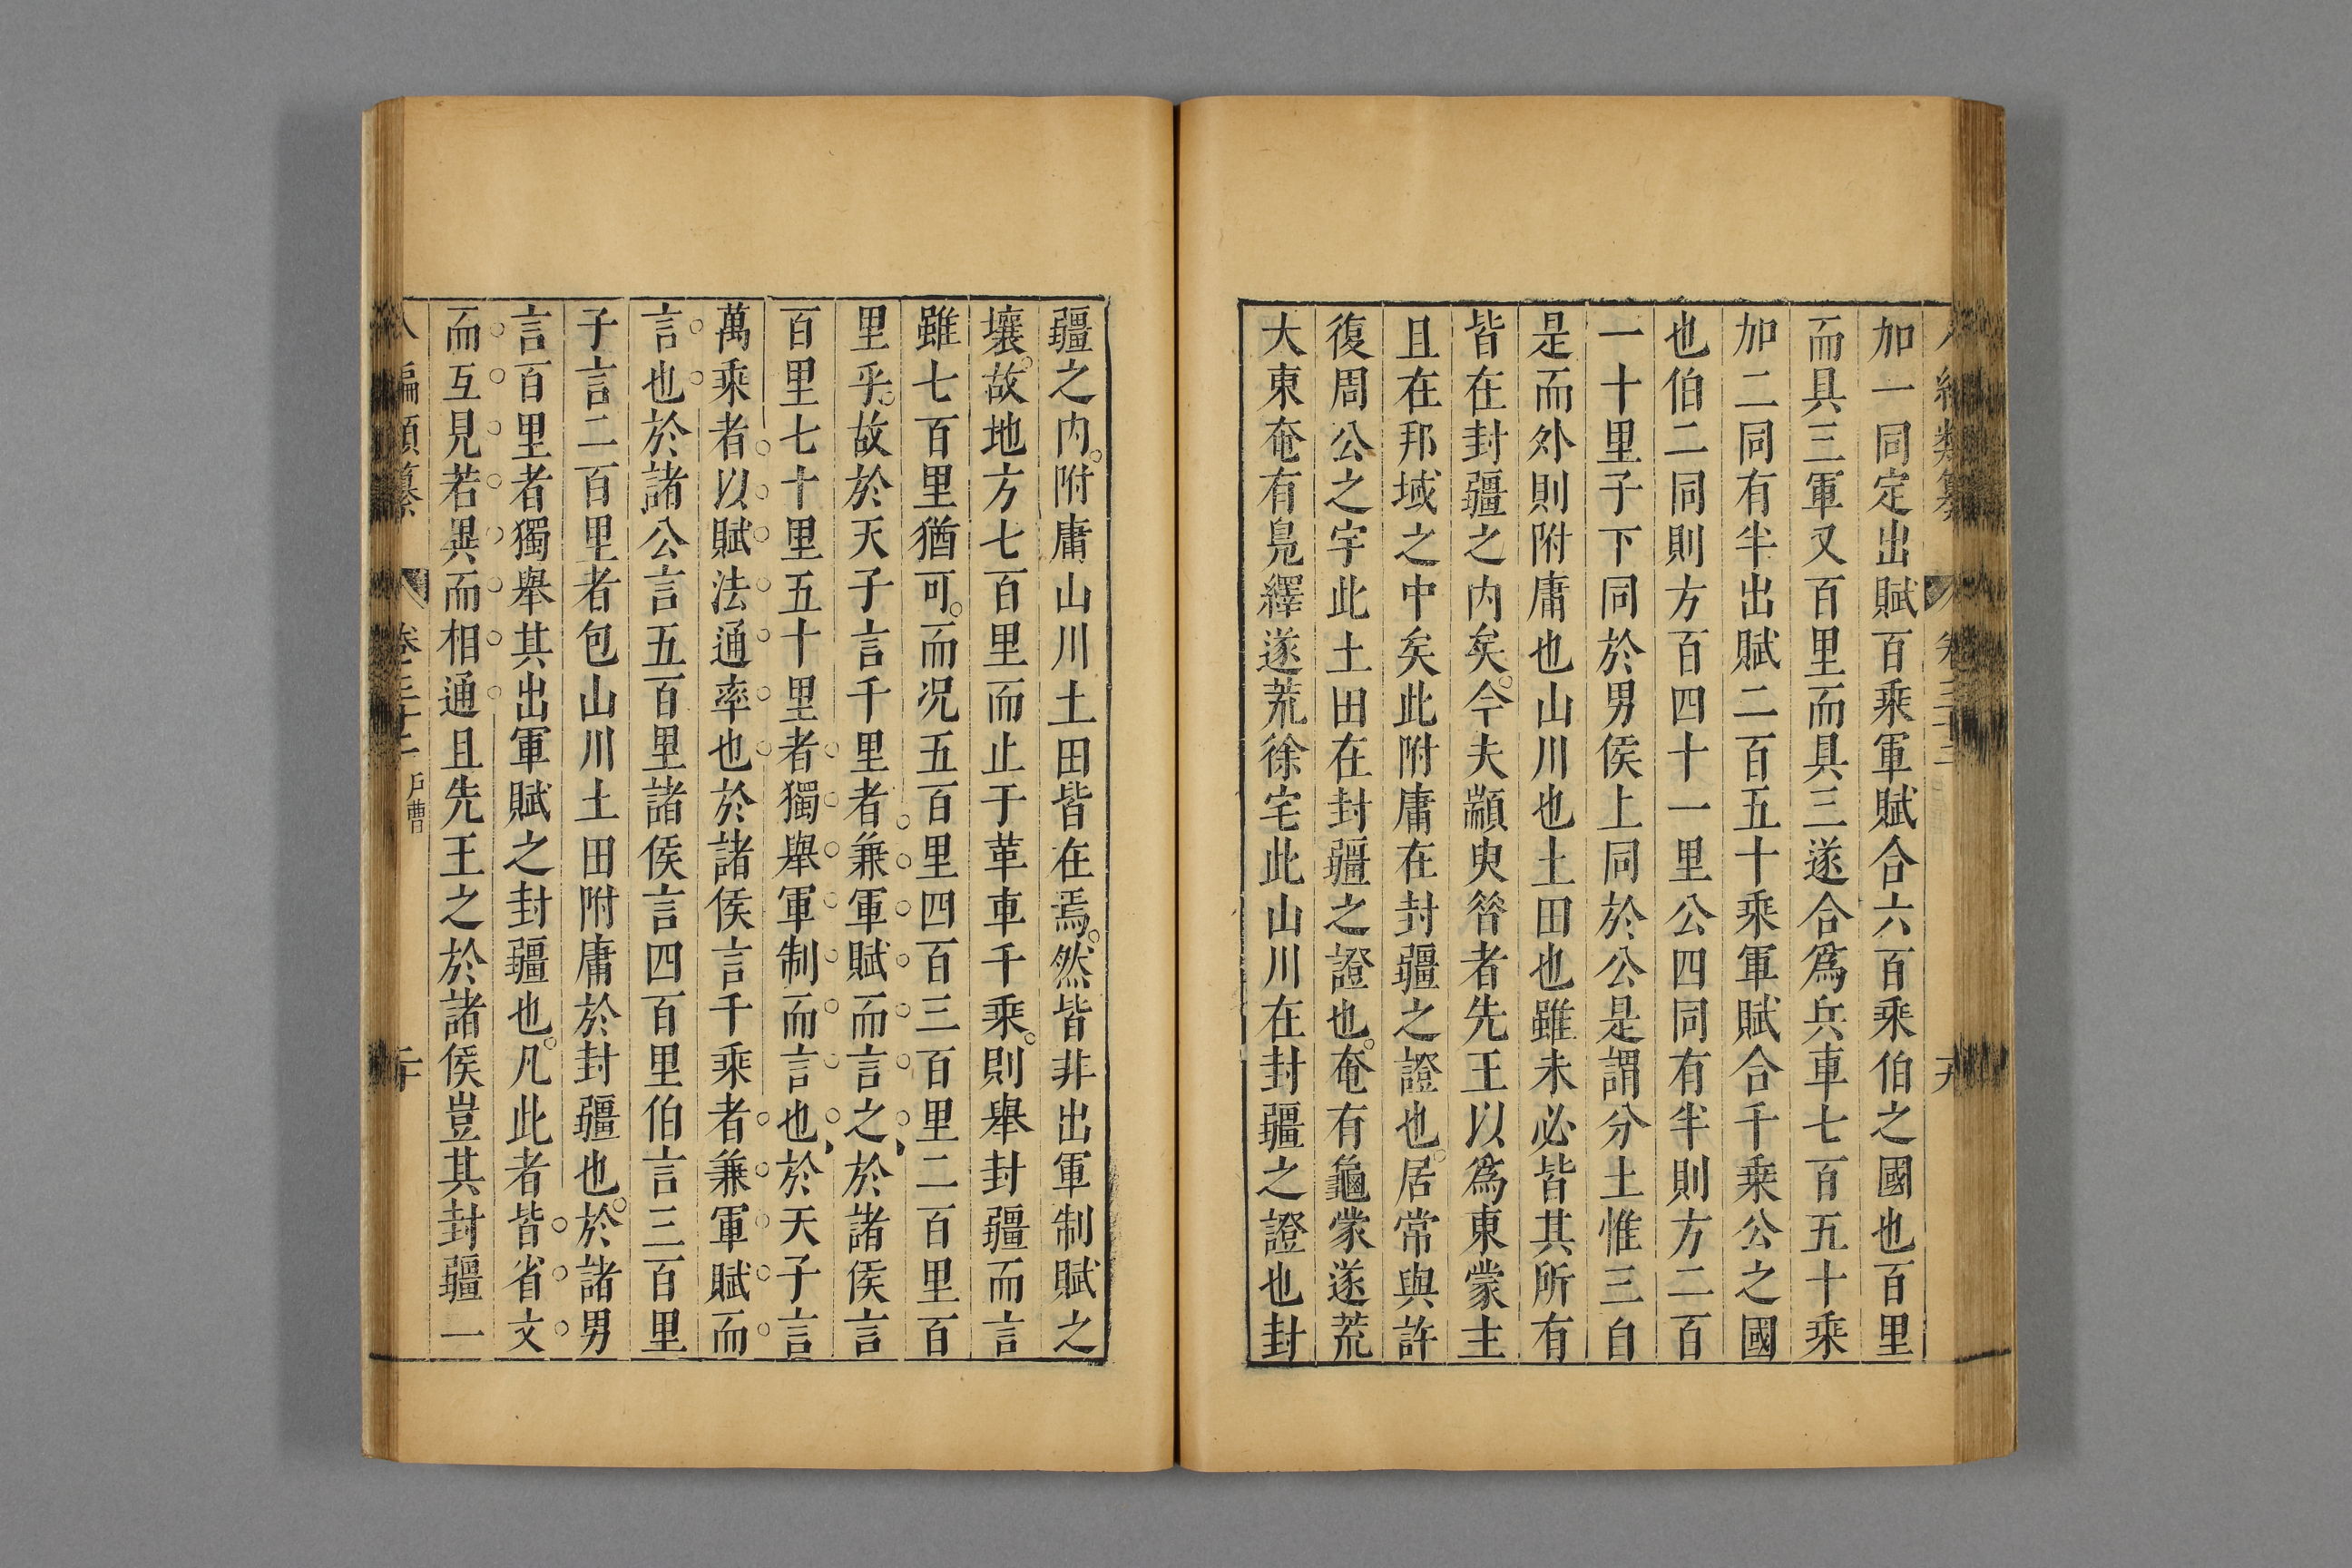 加一同定出賦百乘軍賦合六百乘伯之國也百里
而具三軍又百里而具三遂合爲兵車七百五十乘
加二同有半出賦二百五十乘軍賦合千乘公之國
也伯二同則方百四十一里公四同有半則方二百
一十里子下同於男侯上同於公是謂分土惟三自
是而外則附庸也山川也土田也雖未必皆其所有
皆在封疆之内矣今夫顓臾昝者先王以爲東蒙主
且在邦域之中矣此附庸在封疆之證也居常與許
復周公之宇此土田在封疆之證也奄有龜蒙遂荒
大東奄有鳧繹遂荒徐宅此山川在封疆之證也封
疆之内附庸山川土田皆在焉然皆非出軍制賦之
壤故地方七百里而止于革車千乘則舉封疆而言
雖七百里猶可而况五百里四百三百里二百里百
里乎故於天子言千里者兼軍賦而言之於諸侯言
百里七十里五十里者獨舉軍制而言也於天子言
萬乘者以賦法通率也於諸侯言千乘者兼軍賦而
言也於諸公言五百里諸侯言四百里伯言三百里
子言二百里者包山川土田附庸於封疆也於諸男
言百里者獨舉其出軍賦之封疆也凡此者皆省文
而互見若異而相通且先王之於諸侯豈其封疆一
戶曹